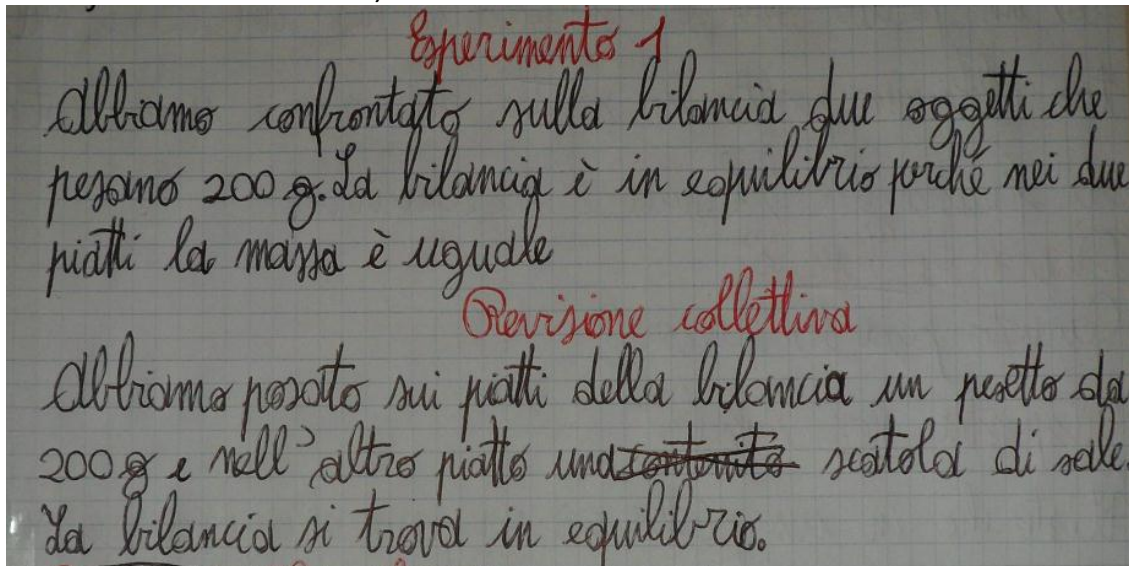 Esperimento 1
Abbiamo confrontato sulla bilancia due oggetti che
pesano 200 g. La bilancia è in equilibrio perché nei due
piatti la massa è uguale
Revisione collettiva
Abbiamo posato sui piatti della bilancia un pesetto da
200 g e nell'altro piatto una scatola di sale.
La bilancia si trova in equilibrio.